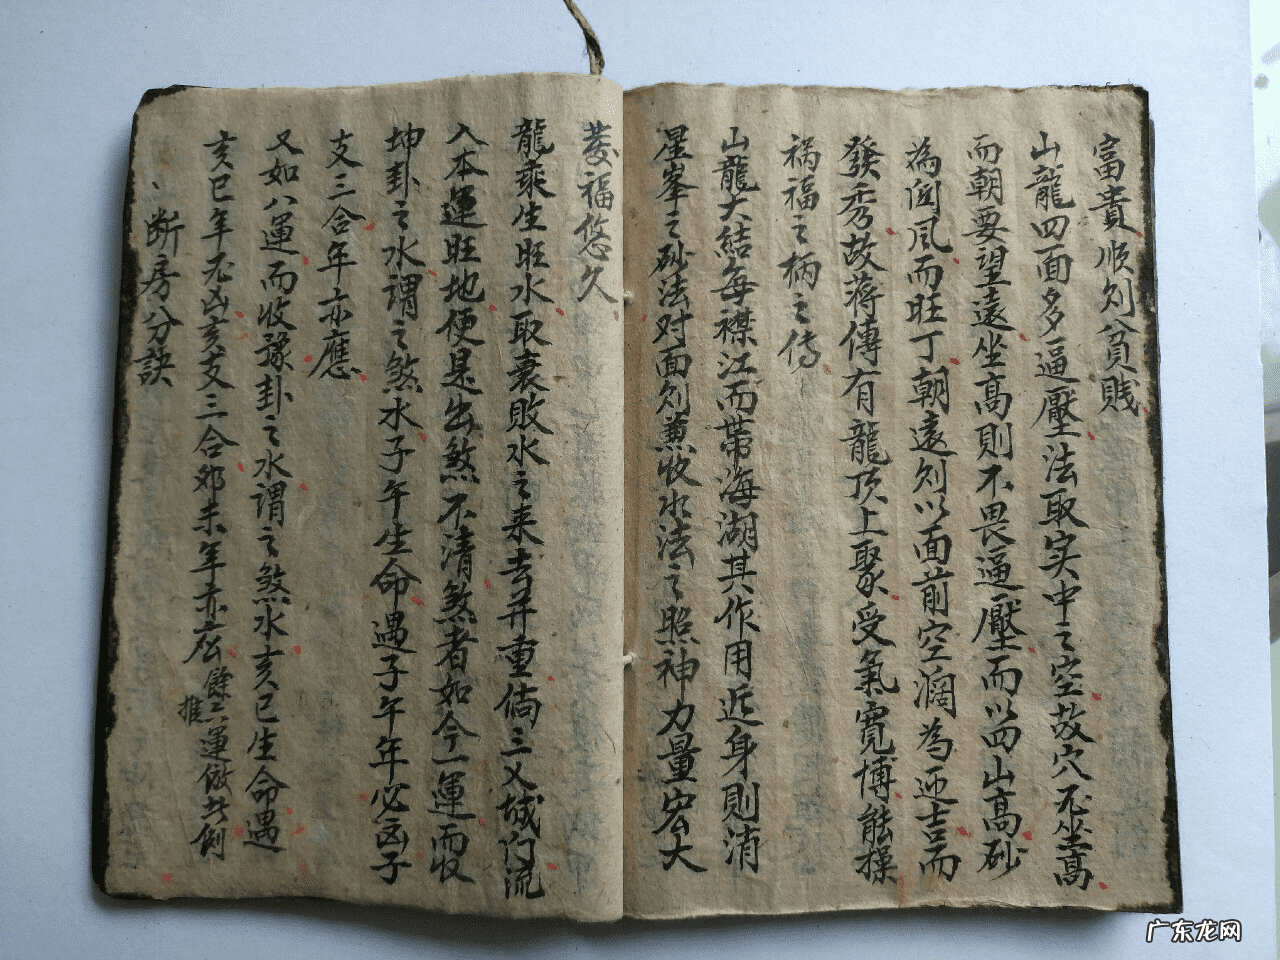 富貴順則貧賤
山龍四面多逼壓法取实中之空故穴不坐高
而朝要望遠坐高則不畏逼壓而以四山高砂
為闾风而旺丁朝遠則以面前空濶為迎吉而
發秀故蔣傳有龍頂上聚受氣寬博能操
禍福之柄之傳
山龍大結每襟江而帶海湖其作用近身則消
星峯之砂法对面則兼收水法之照神力量宏大
發福悠久
龍乘生旺水取衰敗水之来去并重倘三乂城门流
入本運旺地便是出煞不清煞者如今一運而收
坤卦之水謂之煞水子午生命遇子午年必凶子
支三合年亦應
又如八運而收豫卦之水謂之煞水亥巳生命遇
亥巳年不凶亥支三合卯未年亦应餘六運倣此例
推
断房分訣
广东龙网